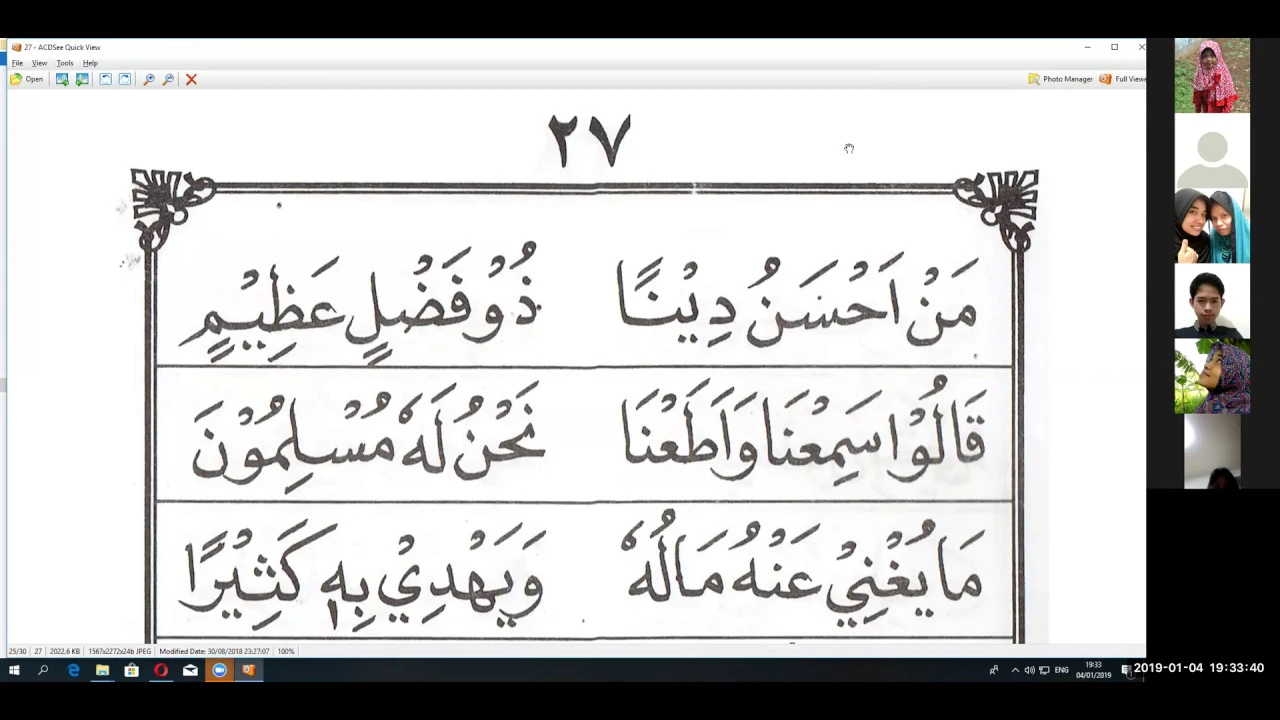 27 - ACDSee Quick View
File View Tools Help
Open Photo Manager Full View
٢٧
مَنْ اَحْسَنُ دِيْنًا ذُوْ فَضْلٍ عَظِيْمٍ
قَالُوْا سَمِعْنَا وَاَطَعْنَا نَحْنُ لَهٗ مُسْلِمُوْنَ
مَا يُغْنِيْ عَنْهُ مَالُهٗ وَيَهْدِيْ بِهٖ كَثِيْرًا
25/30 27 2022.6 KB 1567x2272x24b JPEG Modified Date: 30/08/2018 23:27:07 100%
ENG 19:33
04/01/2019
2019-01-04 19:33:40